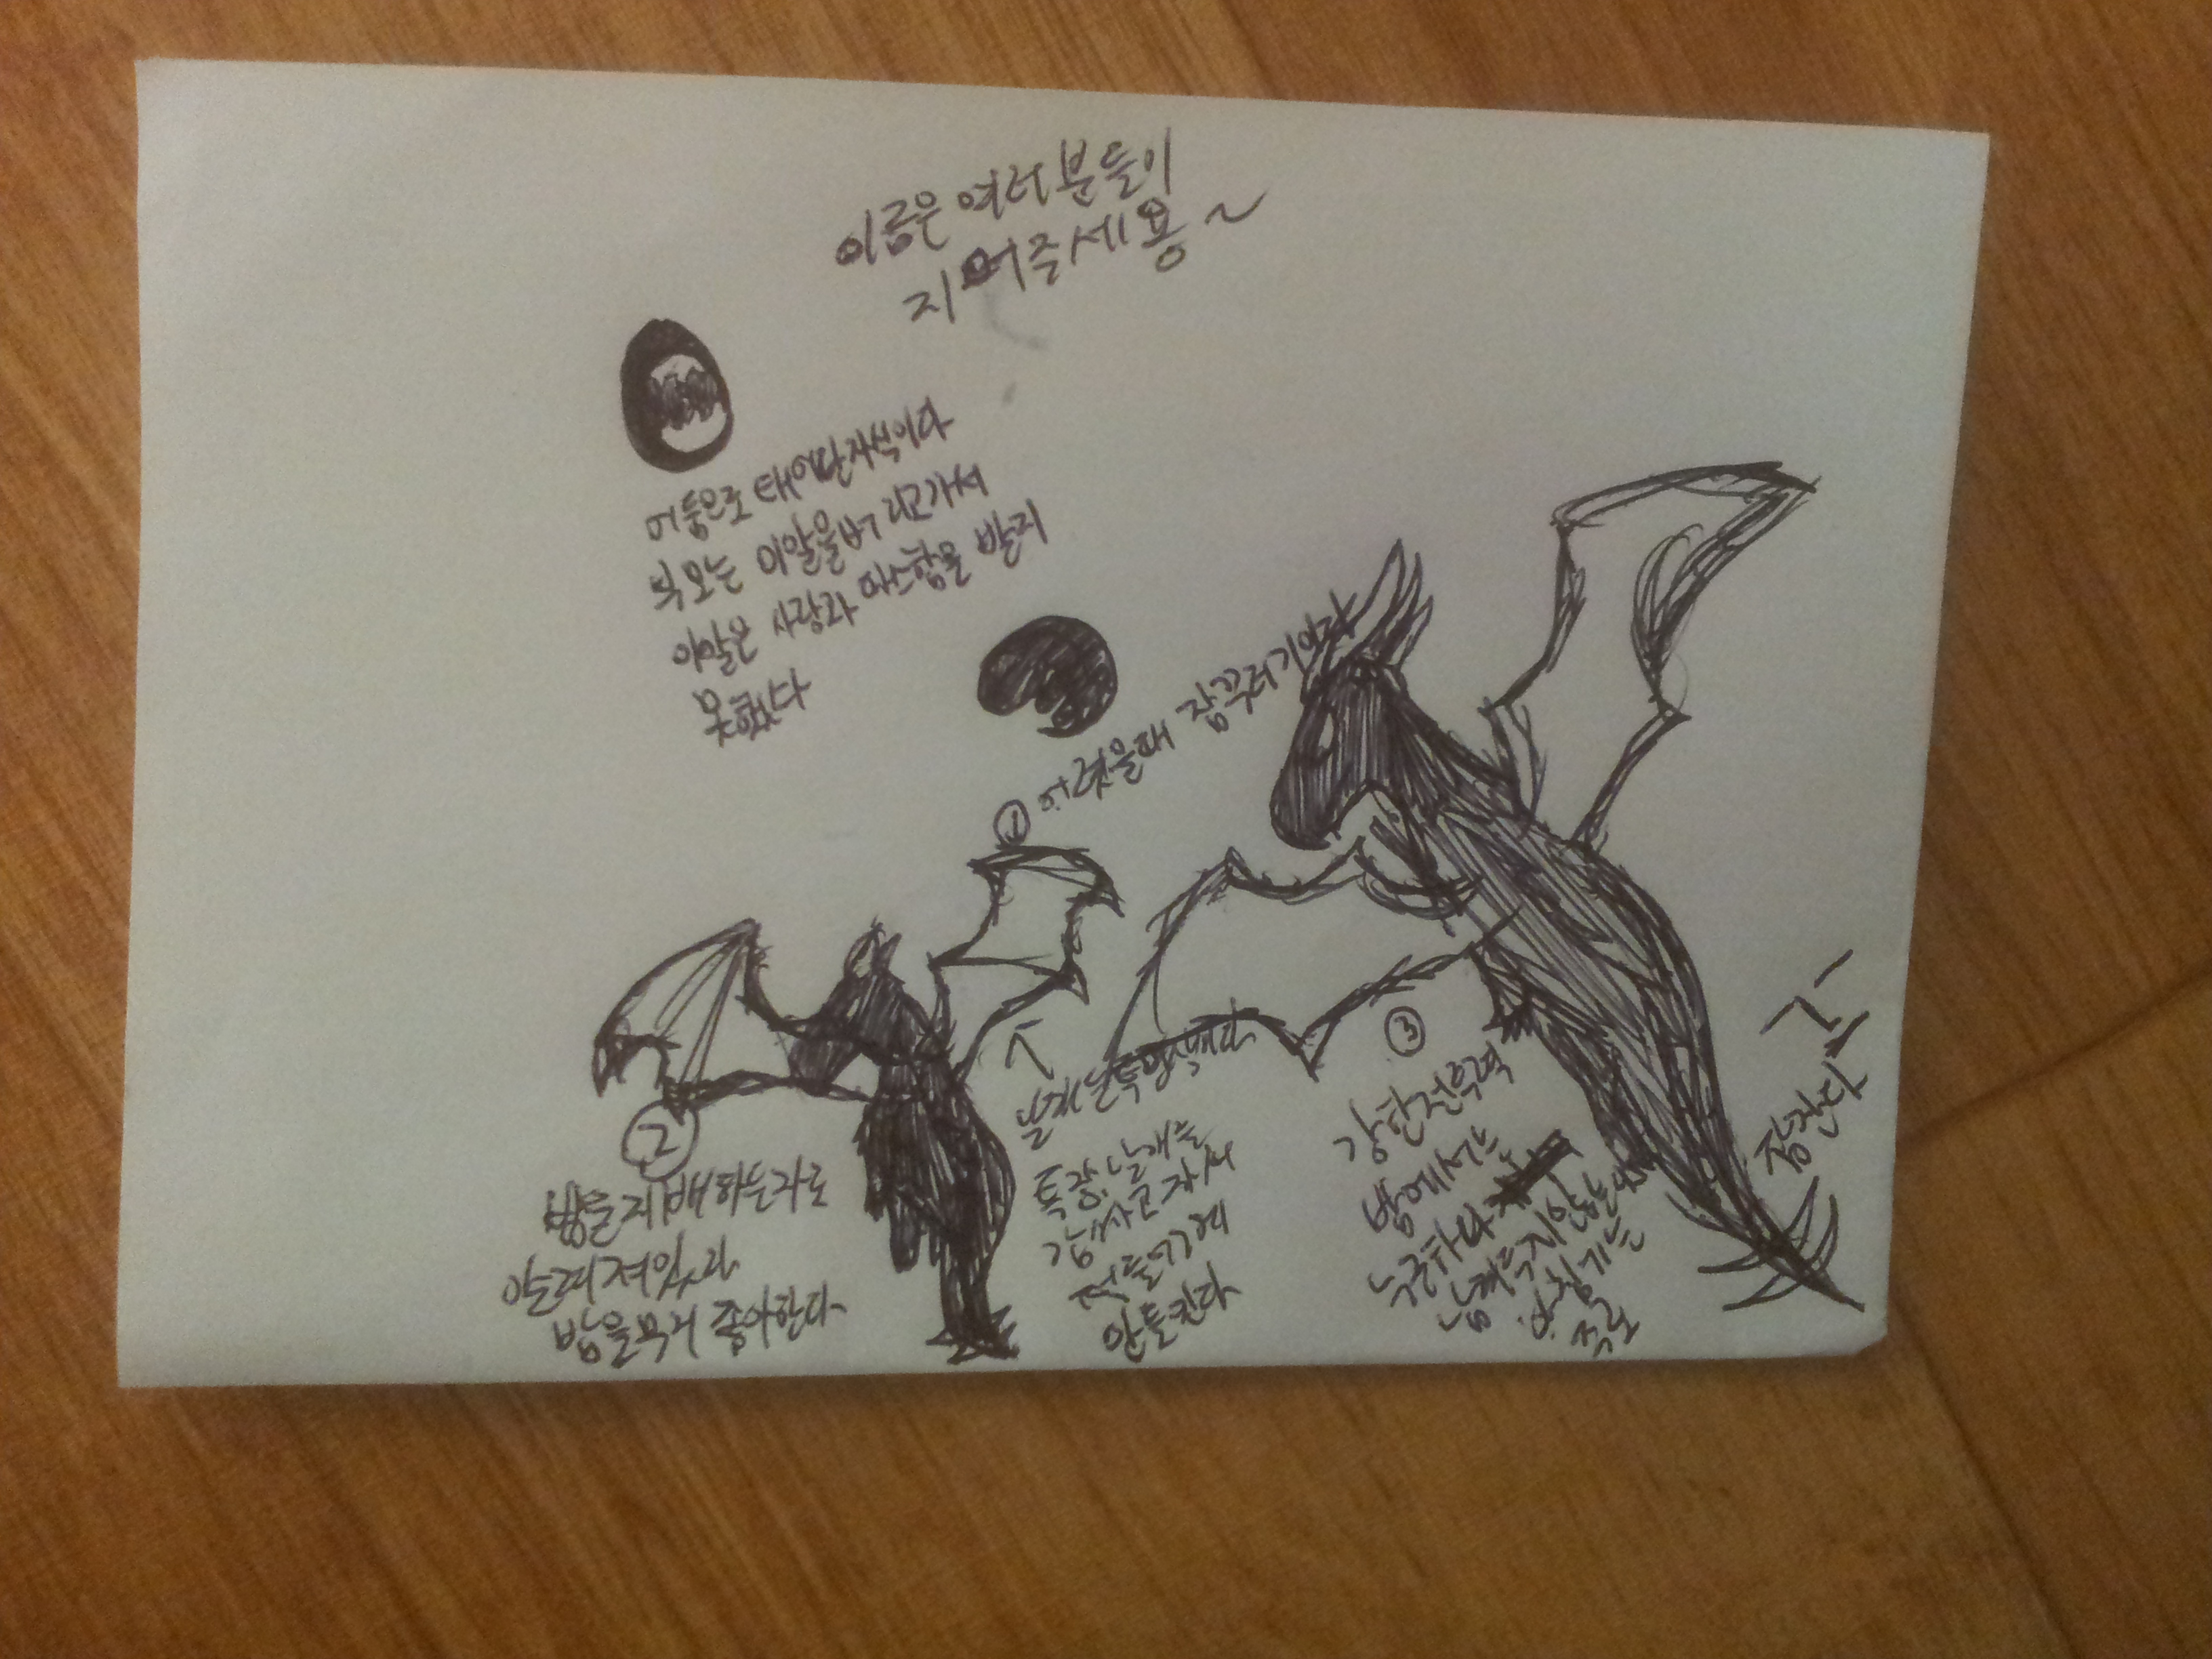 이름은 여러분들이
지어주세용~
어둠으로 태어난 자식이다
부모는 이알을 버리고가서
이알은 사랑과 따스함을 받지
못했다
① 어렸을때 잠꾸러기이다
②
밤을 지배하는자로
알려져있고
밤을 무지 좋아한다
날개는 투명색이다
특징: 날개를
감싸고 자서
적들이
③
강한전투력
밤에서는
누구하나
남겨두지않는
아침기는
주로
잠잔다